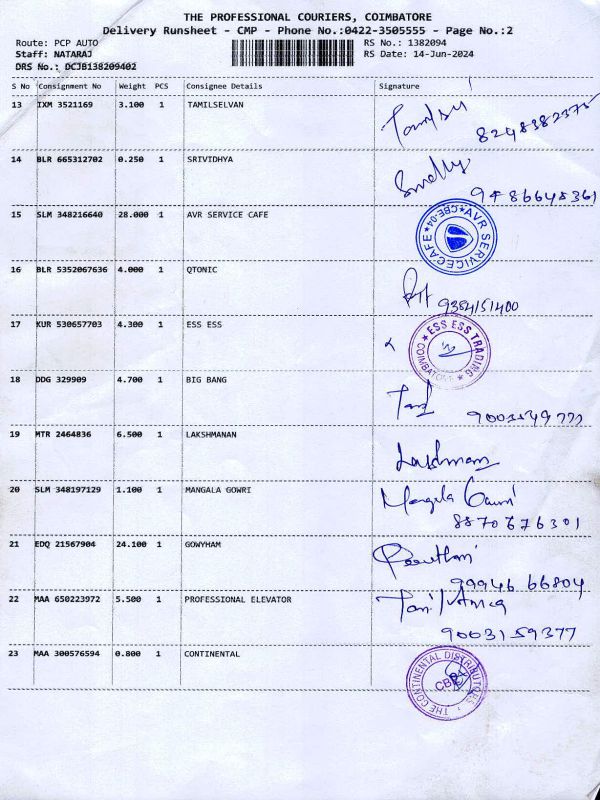 THE PROFESSIONAL COURIERS, COIMBATORE
Delivery Runsheet - CMP - Phone No.:0422-3505555 - Page No.:2
Route: PCP AUTO RS No.: 1382094
Staff: NATARAJ RS Date: 14-Jun-2024
DRS No.: DCJB138209402
S No Consignment No Weight PCS Consignee Details Signature
13 IXM 3521169 3.100 1 TAMILSELVAN
8248382375
14 BLR 665312702 0.250 1 SRIVIDHYA
9486648361
15 SLM 348216640 28.000 1 AVR SERVICE CAFE
AVR SERVICECAFE CBE-04
16 BLR 5352067636 4.000 1 QTONIC
9384151400
17 KUR 530657703 4.300 1 ESS ESS
ESS ESS TRADING COIMBATORE
18 DDG 329909 4.700 1 BIG BANG
19 MTR 2464836 6.500 1 LAKSHMANAN
Lakshmanan
20 SLM 348197129 1.100 1 MANGALA GOWRI
Mangala Gowri
8870676301
21 EDQ 21567904 24.100 1 GOWYHAM
99946 66804
22 MAA 650223972 5.500 1 PROFESSIONAL ELEVATOR
9003159377
23 MAA 300576594 0.800 1 CONTINENTAL
THE CONTINENTAL DISTRIBUTORS